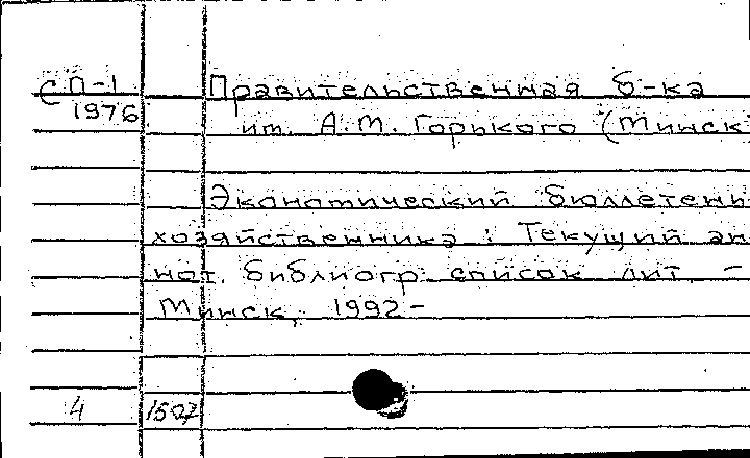 СП-1
1976
Правительственная б-ка
им. А.М. Горького (Минск
Экономический бюллетень
хозяйственника : Текущий ан
нот. библиогр. список лит. –
Минск, 1992–
4 1507